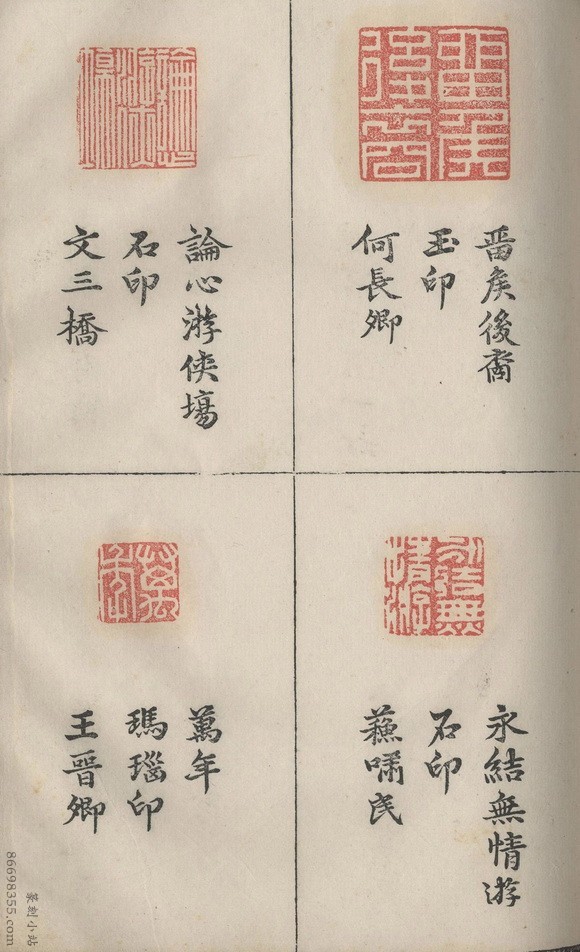 畱矦後裔
玉印
何長卿
論心游俠場
石印
文三橋
永結無情游
石印
蘓嘯民
萬年
瑪瑙印
王晉卿
篆刻小站
86698355.com